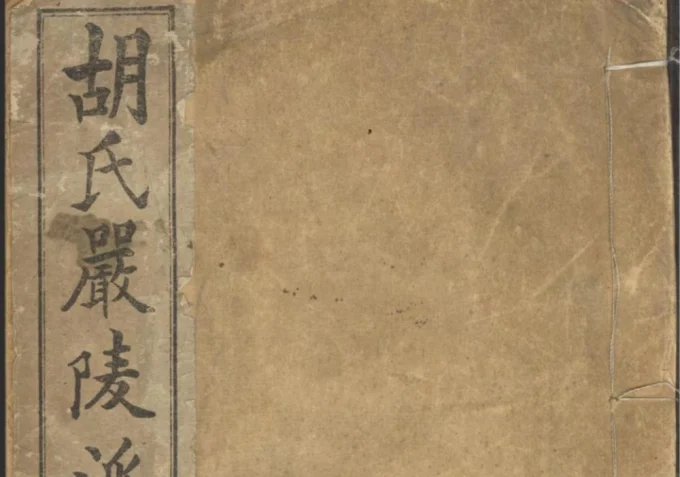 胡氏嚴陵